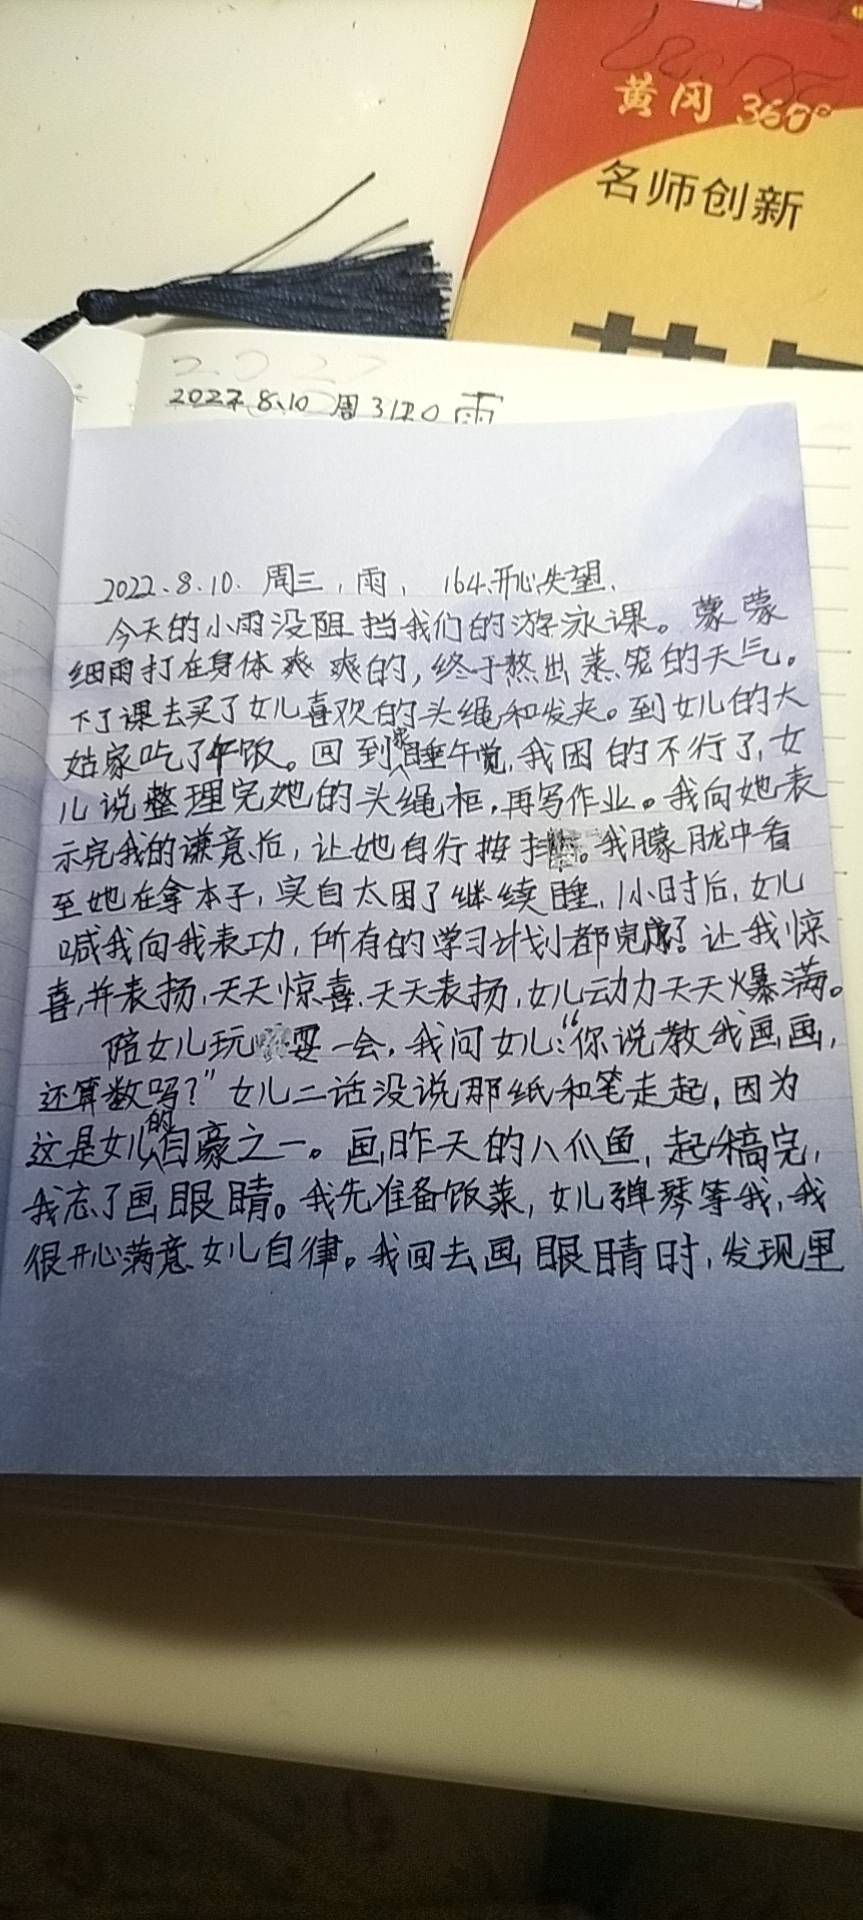 黄冈 360°
名师创新
2022
2022.8.10 周3 雨
2022.8.10. 周三，雨， 164.开心失望.
今天的小雨没阻挡我们的游泳课。蒙蒙
细雨打在身体爽爽的,终于熬出蒸笼的天气。
下了课去买了女儿喜欢的头绳和发夹。到女儿的大
姑家吃了午饭。回到家睡午觉,我困的不行了,女
儿说整理完她的头绳柜,再写作业。我向她表
示完我的谦意后,让她自行按排。我朦胧中看
至她在拿本子,实自太困了继续睡,1小时后,女儿
喊我向我表功,所有的学习计划都完成了。让我惊
喜,并表扬,天天惊喜.天天表扬,女儿动力天天爆满。
陪女儿玩耍一会,我问女儿:“你说教我画画,
还算数吗?”女儿二话没说那纸和笔走起,因为
这是女儿的自豪之一。画昨天的八爪鱼,起稿完,
我忘了画眼睛。我先准备饭菜,女儿弹琴等我,我
很开心满意女儿自律。我回去画眼睛时,发现里